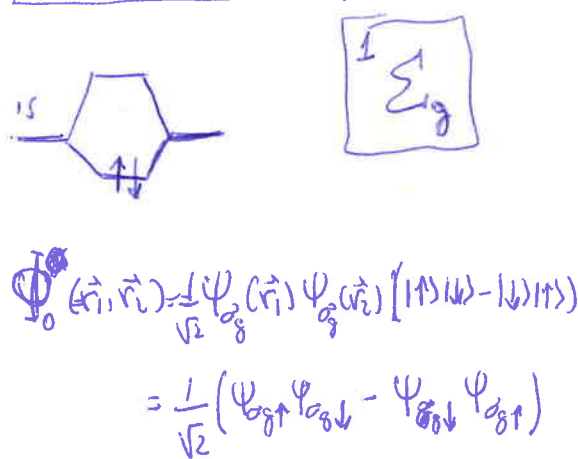 1s
¹Σg
↑↓
Φ₀(r⃗₁,r⃗₂) = 1/√2 Ψσg(r⃗₁) Ψσg(r⃗₂) [|↑⟩|↓⟩-|↓⟩|↑⟩)
= 1/√2 (Ψσg↑ Ψσg↓ - Ψσg↓ Ψσg↑)